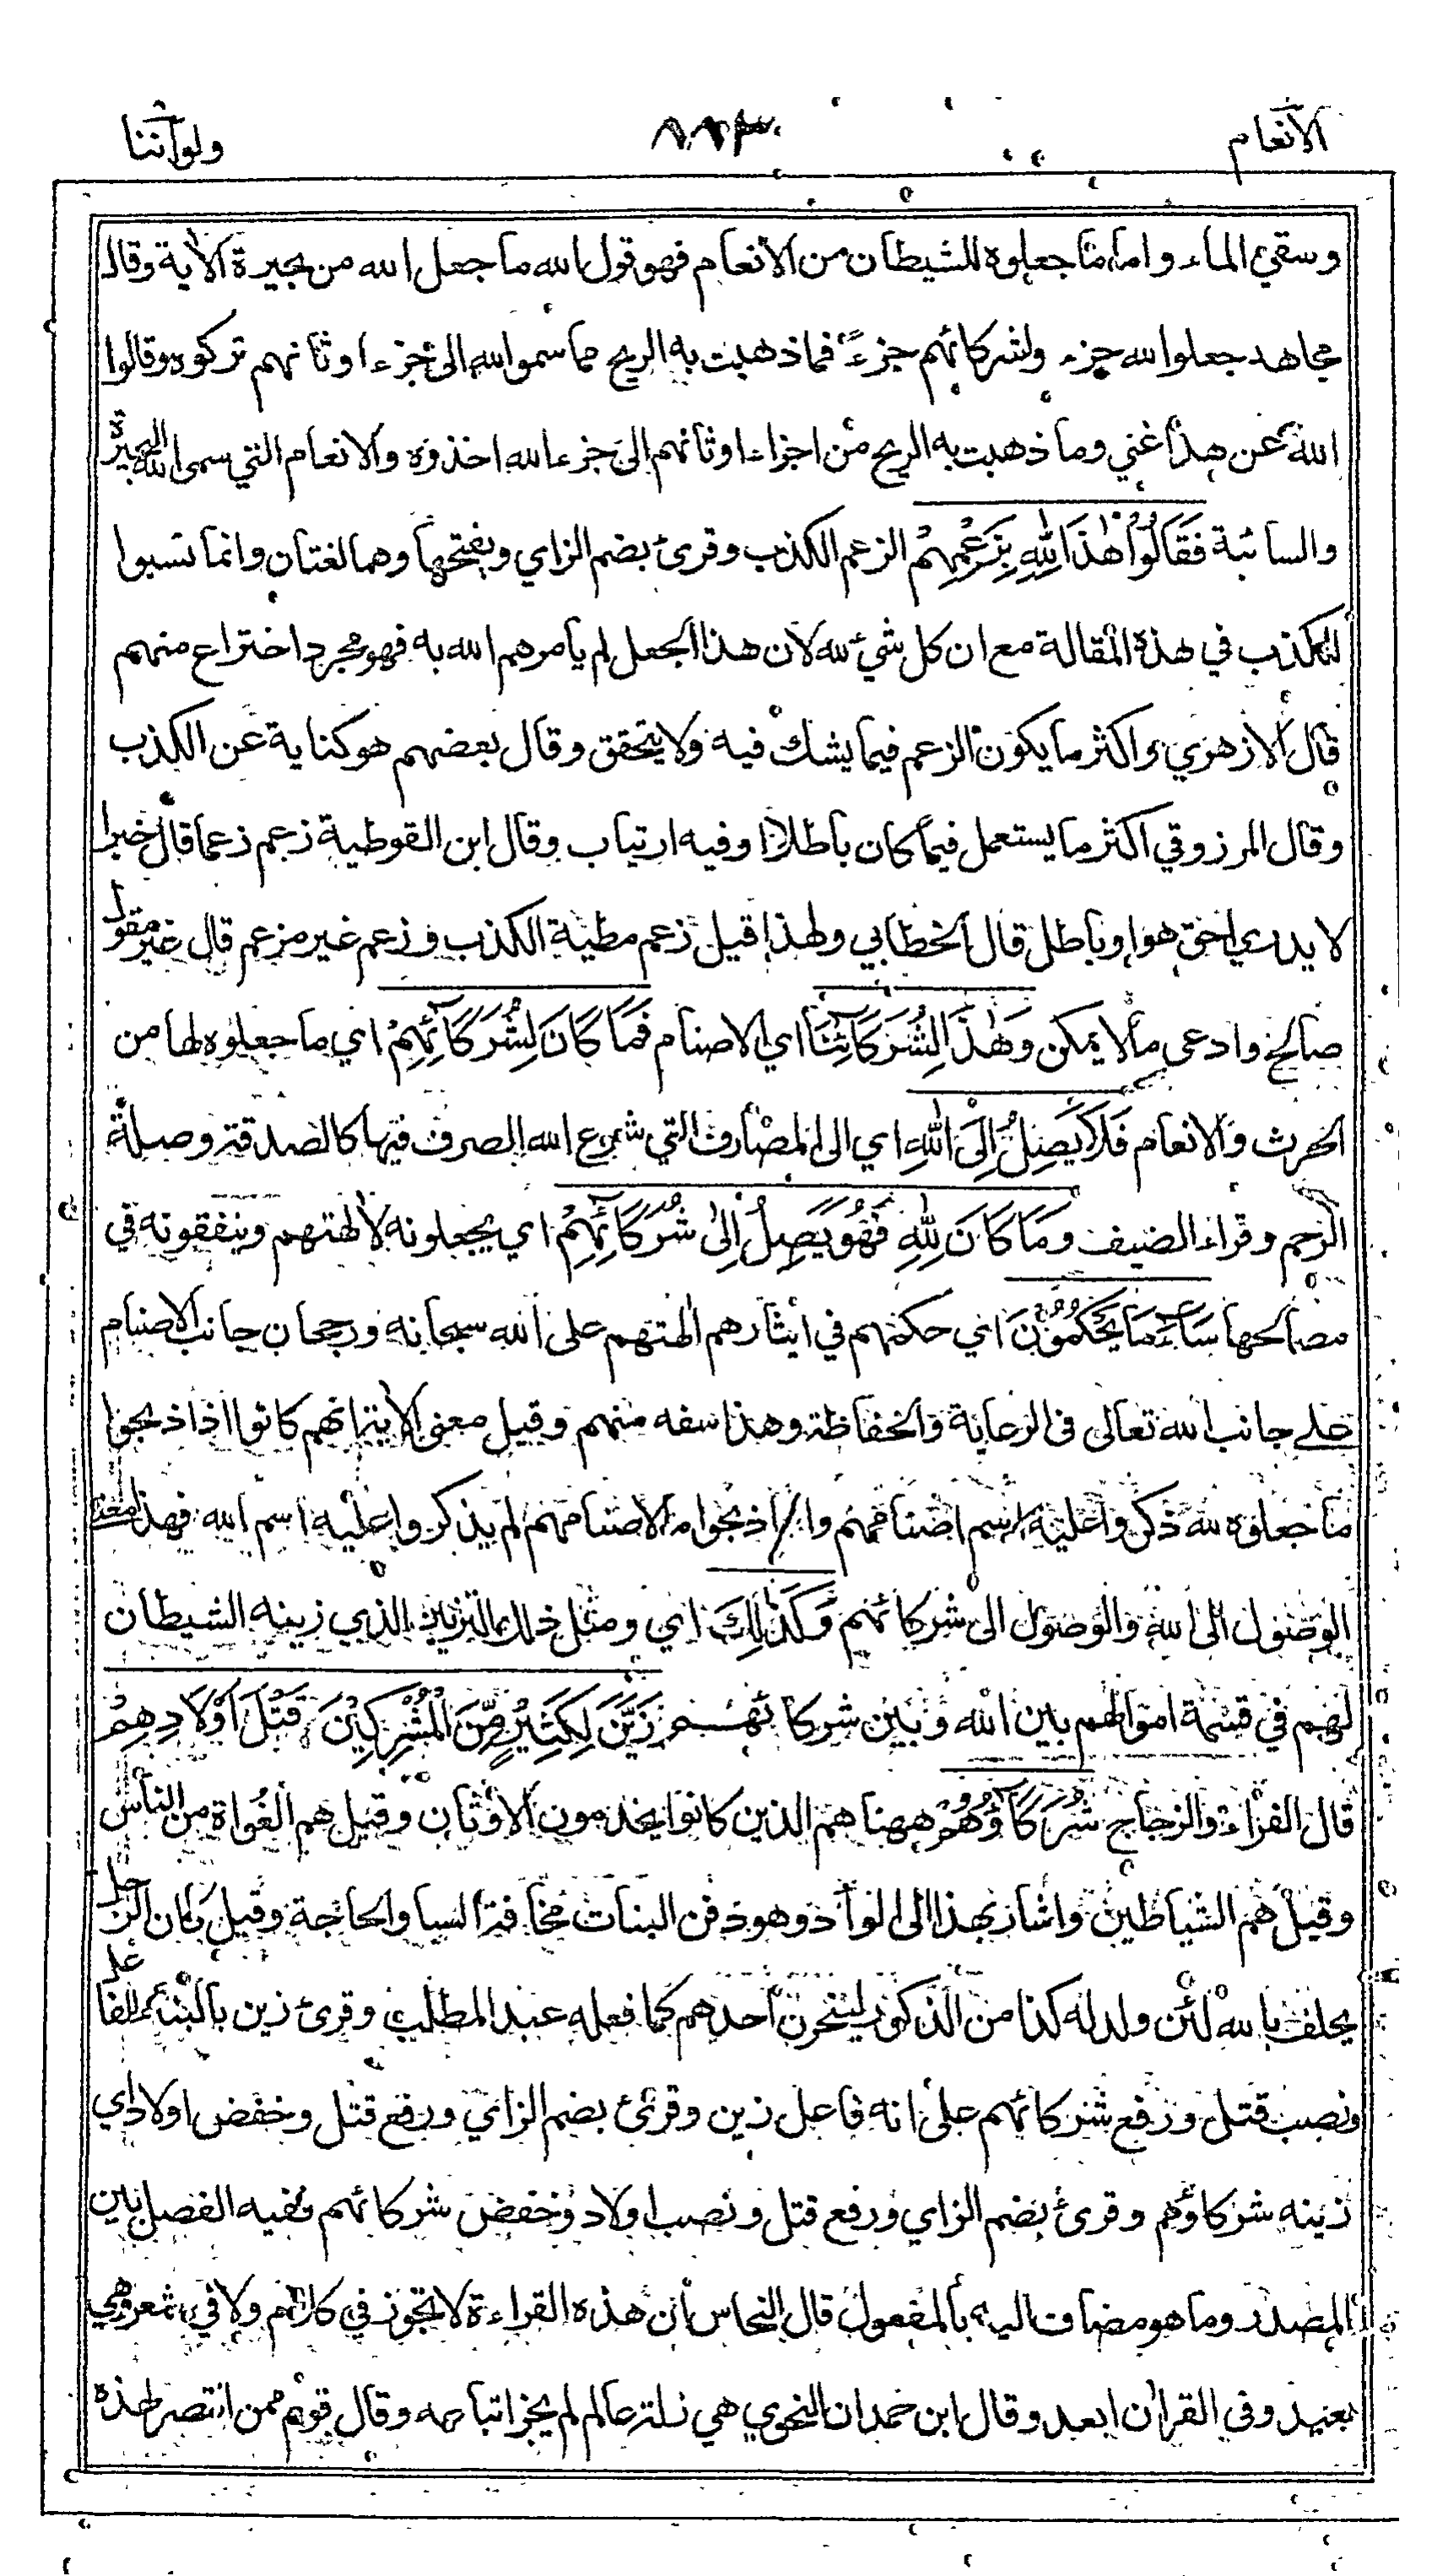 الانعام
ولو اننا
وسقي الماء واما ما جعلوه للشيطان من الانعام فهو قول الله ما جعل الله من بحيرة الاية وقال
مجاهد جعلوا لله جزء ولشركائهم جزءً فما ذهبت به الريح مما سموا لله الى جزء اوثانهم تركوه وقالوا
الله عن هذا غني وما ذهبت به الريح من اجزاء اوثانهم الى جزء الله اخذوه والانعام التي سمى الله البحيرة
والسائبة فَقَالُوْا هٰذَا لِلّٰهِ بِزَعْمِهِمْ الزعم الكذب وقرئ بضم الزاي وبفتحها وهما لغتان وانما نسبوا
للكذب في هذه المقالة مع ان كل شيء لله لان هذا الجعل لم يأمرهم الله به فهو مجرد اختراع منهم
قال الازهري واكثر ما يكون الزعم فيما يشك فيه ولا يتحقق وقال بعضهم هو كناية عن الكذب
وقال المرزوقي اكثر ما يستعمل فيما كان باطلا او فيه ارتياب وقال ابن القوطية زعم زعما قال خبرا
لا يدرى احق هو او باطل قال الخطابي ولهذا قيل زعم مطية الكذب وزعم غير مزعم قال غير مقول
صالح وادعى ما لا يمكن وَهٰذَا لِشُرَكَآئِنَا اي الاصنام فَمَا كَانَ لِشُرَكَآئِهِمْ اي ما جعلوه لها من
الحرث والانعام فَلَا يَصِلُ اِلَى اللّٰهِ اي الى المصارف التي شرع الله الصرف فيها كالصدقة وصلة
الرحم وقراء الضيف وَمَا كَانَ لِلّٰهِ فَهُوَ يَصِلُ اِلٰى شُرَكَآئِهِمْ اي يجعلونه لالهتهم وينفقونه في
مصالحها سَآءَ مَا يَحْكُمُوْنَ اي حكمهم في ايثارهم الهتهم على الله سبحانه ورجحان جانب الاصنام
على جانب الله تعالى في الرعاية والحفاظة وهذا سفه منهم وقيل معنى الاية انهم كانوا اذا ذبحوا
ما جعلوه لله ذكروا عليه اسم اصنامهم واذا ذبحوا ما لاصنامهم لم يذكروا عليه اسم الله فهذا معنى
الوصول الى الله والوصول الى شركائهم وَكَذٰلِكَ اي ومثل ذلك التزيين الذي زينه الشيطان
لهم في قسمة اموالهم بين الله وبين شركائهم زَيَّنَ لِكَثِيْرٍ مِّنَ الْمُشْرِكِيْنَ قَتْلَ اَوْلَادِهِمْ
قال الفراء والزجاج شُرَكَآؤُهُمْ ههنا هم الذين كانوا يخدمون الاوثان وقيل هم الغواة من الناس
وقيل هم الشياطين واشار بهذا الى الوأد وهو دفن البنات مخافة السبا والحاجة وقيل كان الرجل
يحلف بالله لئن ولد له كذا من الذكور لينحرن احدهم كما فعله عبد المطلب وقرئ زين بالبناء للفاعل
ونصب قتل ورفع شركائهم على انه فاعل زين وقرئ بضم الزاي ورفع قتل وخفض اولاد اي
زينه شركاؤهم وقرئ بضم الزاي ورفع قتل ونصب اولاد وخفض شركائهم ففيه الفصل بين
المصدر وما هو مضاف اليه بالمفعول قال النحاس ان هذه القراءة لا تجوز في كلام ولا في شعر وهي
بعيد وفي القران ابعد وقال ابن حمدان النحوي هي زلة عالم لم يجز اتباعه وقال قوم ممن انتصر لهذه